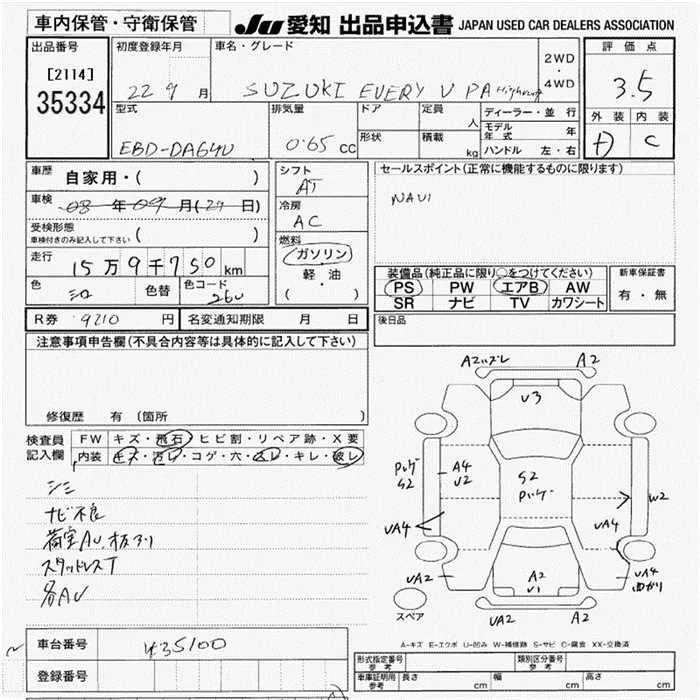 車内保管・守衛保管
JU 愛知 出品申込書 JAPAN USED CAR DEALERS ASSOCIATION
出品番号
[2114]
35334
初度登録年月
22 9 月
車名・グレード
SUZUKI EVERY V PA
2WD
・
4WD
評価点
3.5
外装 内装
C
型式
EBD-DA64V
排気量
0.65 cc
ドア
形状
定員
人
積載
kg
ディーラー・並行
モデル年式 年
ハンドル 左・右
車歴 自家用・( )
車検 08 年 09 月(24 日)
受検形態
車検付きのみ記入して下さい ( )
走行 15万9千750km
色 シロ 色替 色コード 26U
シフト
AT
冷房
AC
燃料
ガソリン
軽・油
( )
セールスポイント(正常に機能するものに限ります)
NAVI
装備品(純正品に限り○をつけてください)
PS PW エアB AW
SR ナビ TV カワシート
新車保証書
有・無
R券 9210 円 名変通知期限 月 日
後日品
注意事項申告欄(不具合内容等は具体的に記入して下さい)
修復歴 有 (箇所 )
検査員記入欄
FW キズ・飛石・ヒビ割・リペア跡・X要
内装 キズ・汚レ・コゲ・穴・スレ・キレ・破レ
シミ
ナビ不良
荷室AU、板アリ
スタッドレスT
各AU
A2ハズレ A2
U3
Pハゲ
S2
A4
U2
S2
Pハゲ
W2
UA4
UA4
UA2
A2
U1
UA4
曲がり
スペア
UA2 A2
A-キズ E-エクボ U-凹み W-補修跡 S-サビ C-腐食 XX-交換済
車台番号 435100
登録番号
形式指定番号
参考
類別区分番号
参考
車庫証明用
参考
長さ cm
幅 cm
高さ cm